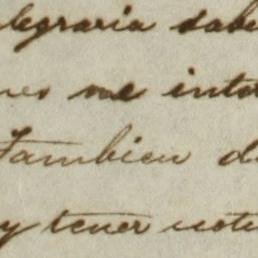 legraria sabe
nes me inte
Tambien d
y tener noti